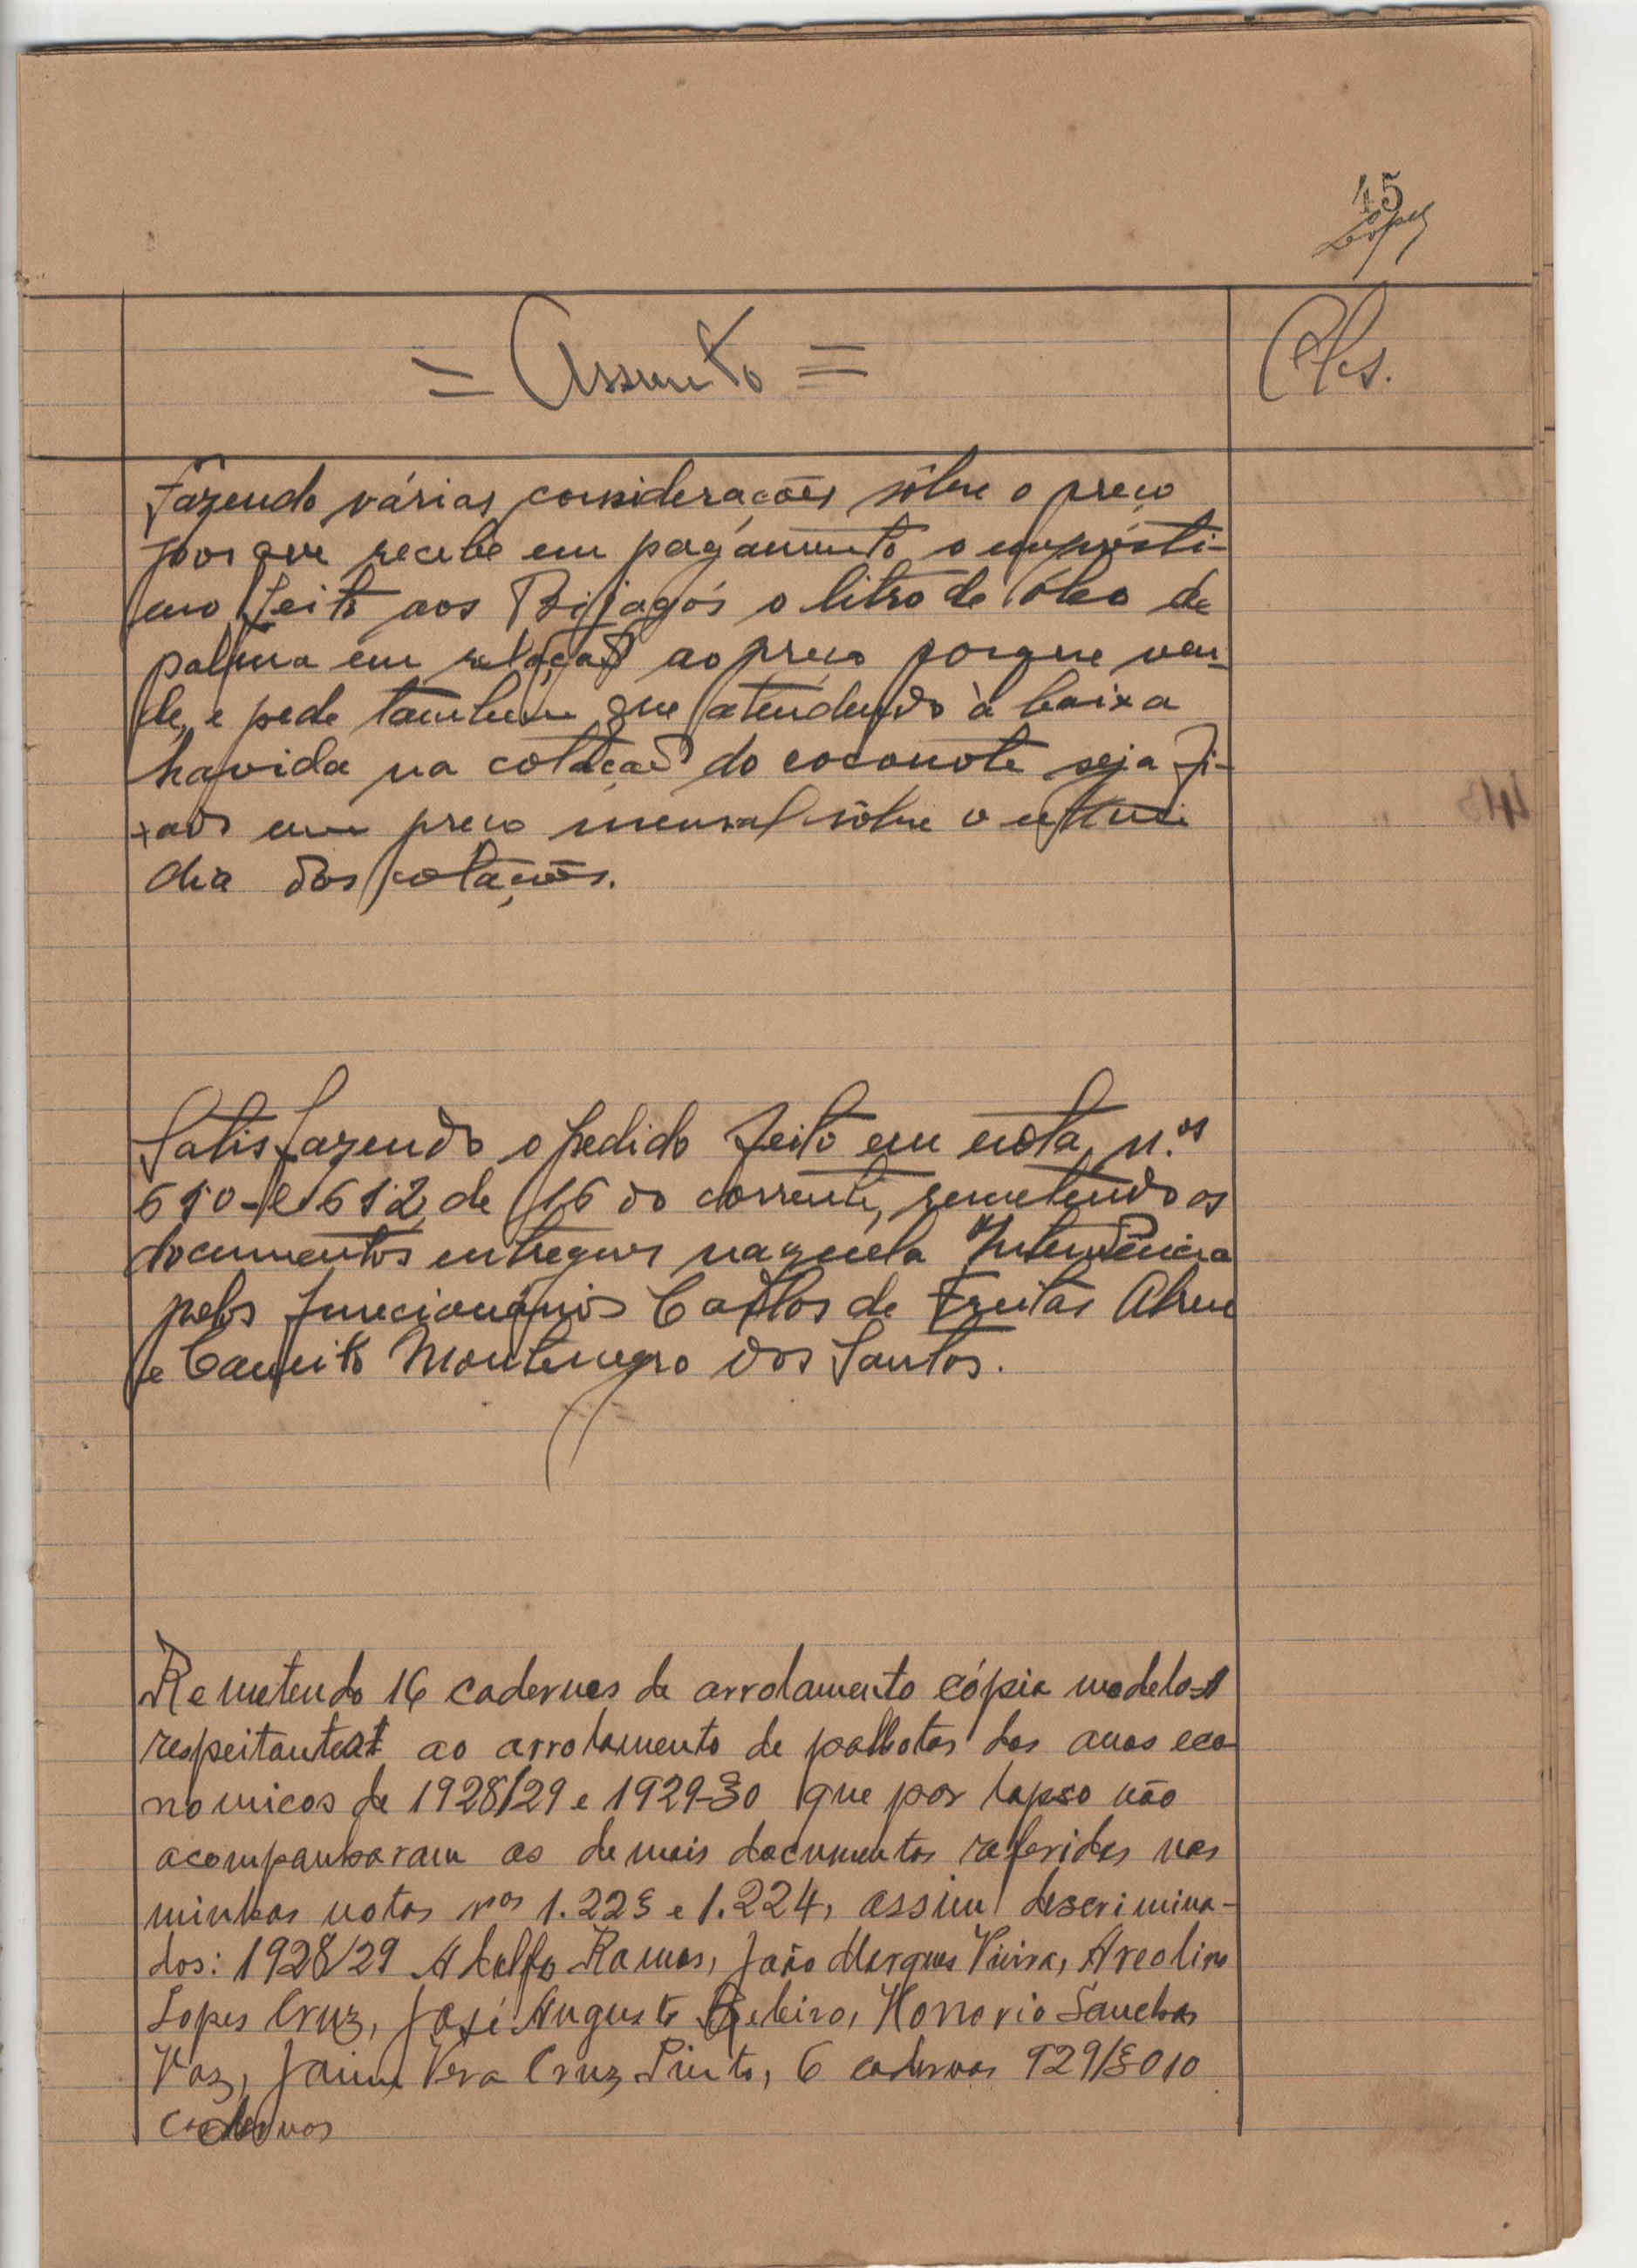 45
Lopes
= Assunto =
Obs.
Fazendo várias considerações sôbre o preço
porque recebe em pagamento o emprésti-
mo feito aos Bijagós o litro de óleo de
palma em relação ao preço porque ven-
de, e pede tambem que atendendo à baixa
havida na cotação do coconote seja fi-
xado um preço mensal sôbre o
dia das cotações.
Satisfazendo o pedido feito em nota n.os
610 e 612 de 16 do corrente, remetendo os
documentos entregues naquela Intendência
pelos funcionários Carlos de Freitas Abreu
e Montenegro dos Santos.
Remetendo 16 cadernos de arrolamento cópia modelo-1
respeitantes ao arrolamento de palhotas dos anos eco-
nomicos de 1928/29 e 1929-30 que por lapso não
acompanharam os demais documentos referidos nas
minhas notas nos 1.223 e 1.224, assim descrimina-
dos: 1928/29 Adolfo Ramos, João Marques Vieira, Areolino
Lopes Cruz, José Augusto Ribeiro, Honorio Sanches
Vaz, Jaime Vera Cruz Pinto, 6 cadernos 929/30 10
cadernos